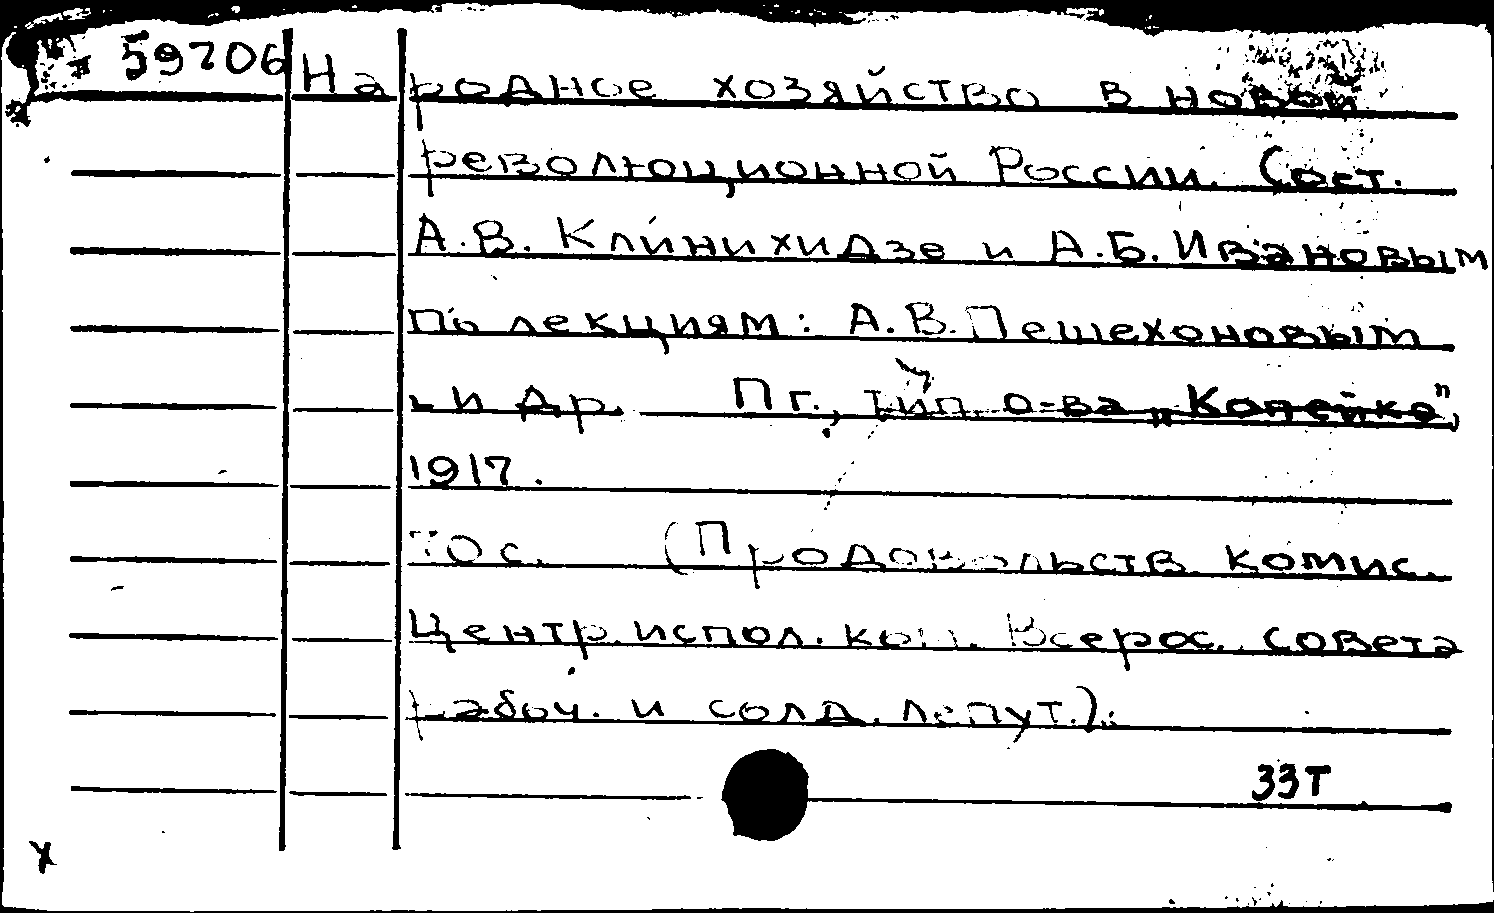 59706 Народное хозяйство в новой
революционной России. Сост.
А.В. Клинихидзе и А.Б. Ивановым
по лекциям: А.В. Пешехоновым
и др. Пг., тип. о-ва „Копейка",
1917.
70 с. (Продовольств. комис.
Центр. испол. ком. Всерос. совета
рабоч. и солд. депут.).
33Т
х